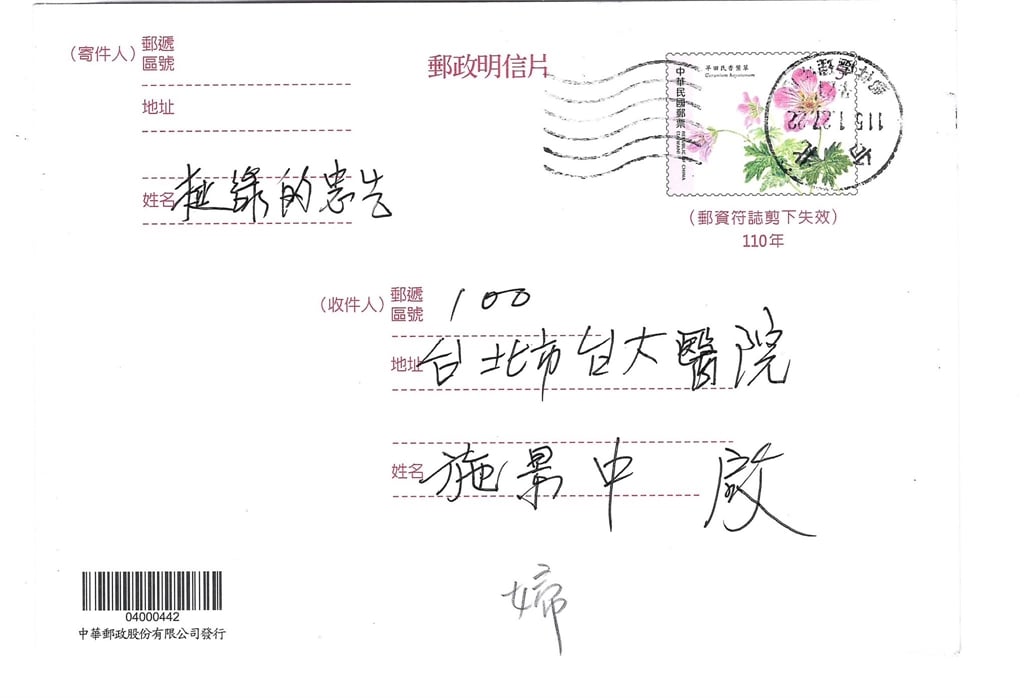 (寄件人) 郵遞區號
地址
姓名 挺綠的忠告
郵政明信片
中華民國郵票
REPUBLIC OF CHINA
早田氏香葉草
Geranium hayatanum
115.1.27.22
(郵資符誌剪下失效)
110年
(收件人) 郵遞區號 100
地址 台北市台大醫院
姓名 施景中 啟
婦
04000442
中華郵政股份有限公司發行